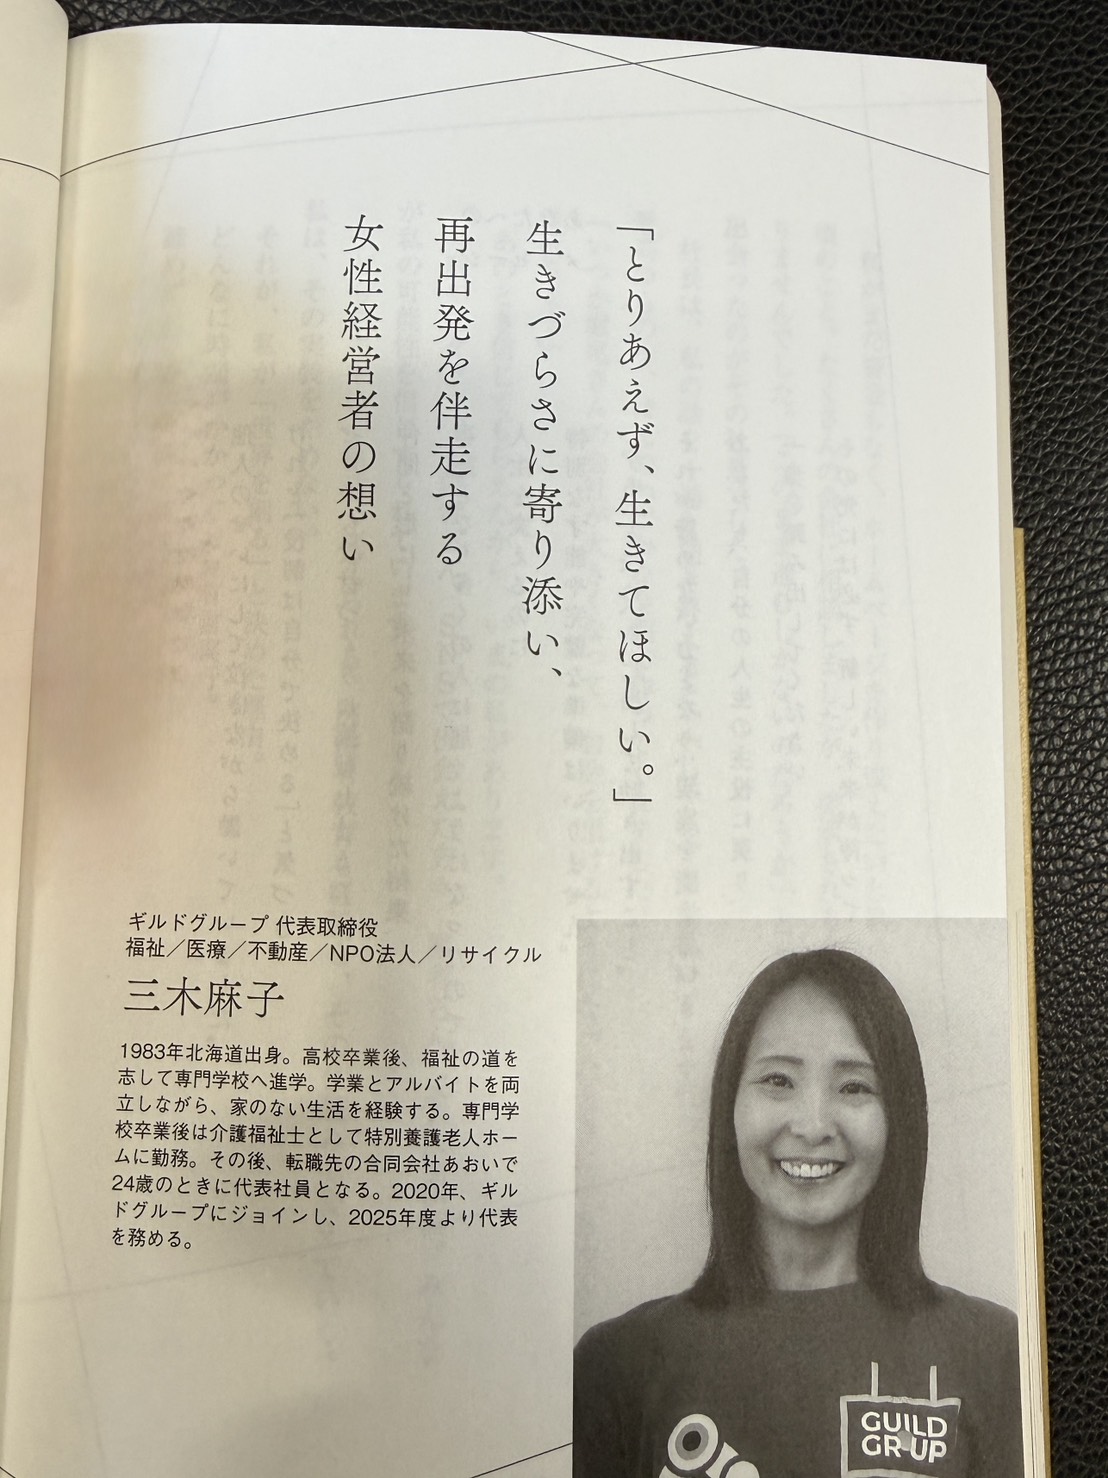 「とりあえず、生きてほしい。」
生きづらさに寄り添い、
再出発を伴走する
女性経営者の想い
ギルドグループ 代表取締役
福祉／医療／不動産／NPO法人／リサイクル
三木麻子
1983年北海道出身。高校卒業後、福祉の道を
志して専門学校へ進学。学業とアルバイトを両
立しながら、家のない生活を経験する。専門学
校卒業後は介護福祉士として特別養護老人ホー
ムに勤務。その後、転職先の合同会社あおいで
24歳のときに代表社員となる。2020年、ギル
ドグループにジョインし、2025年度より代表
を務める。
GUILD
GR UP